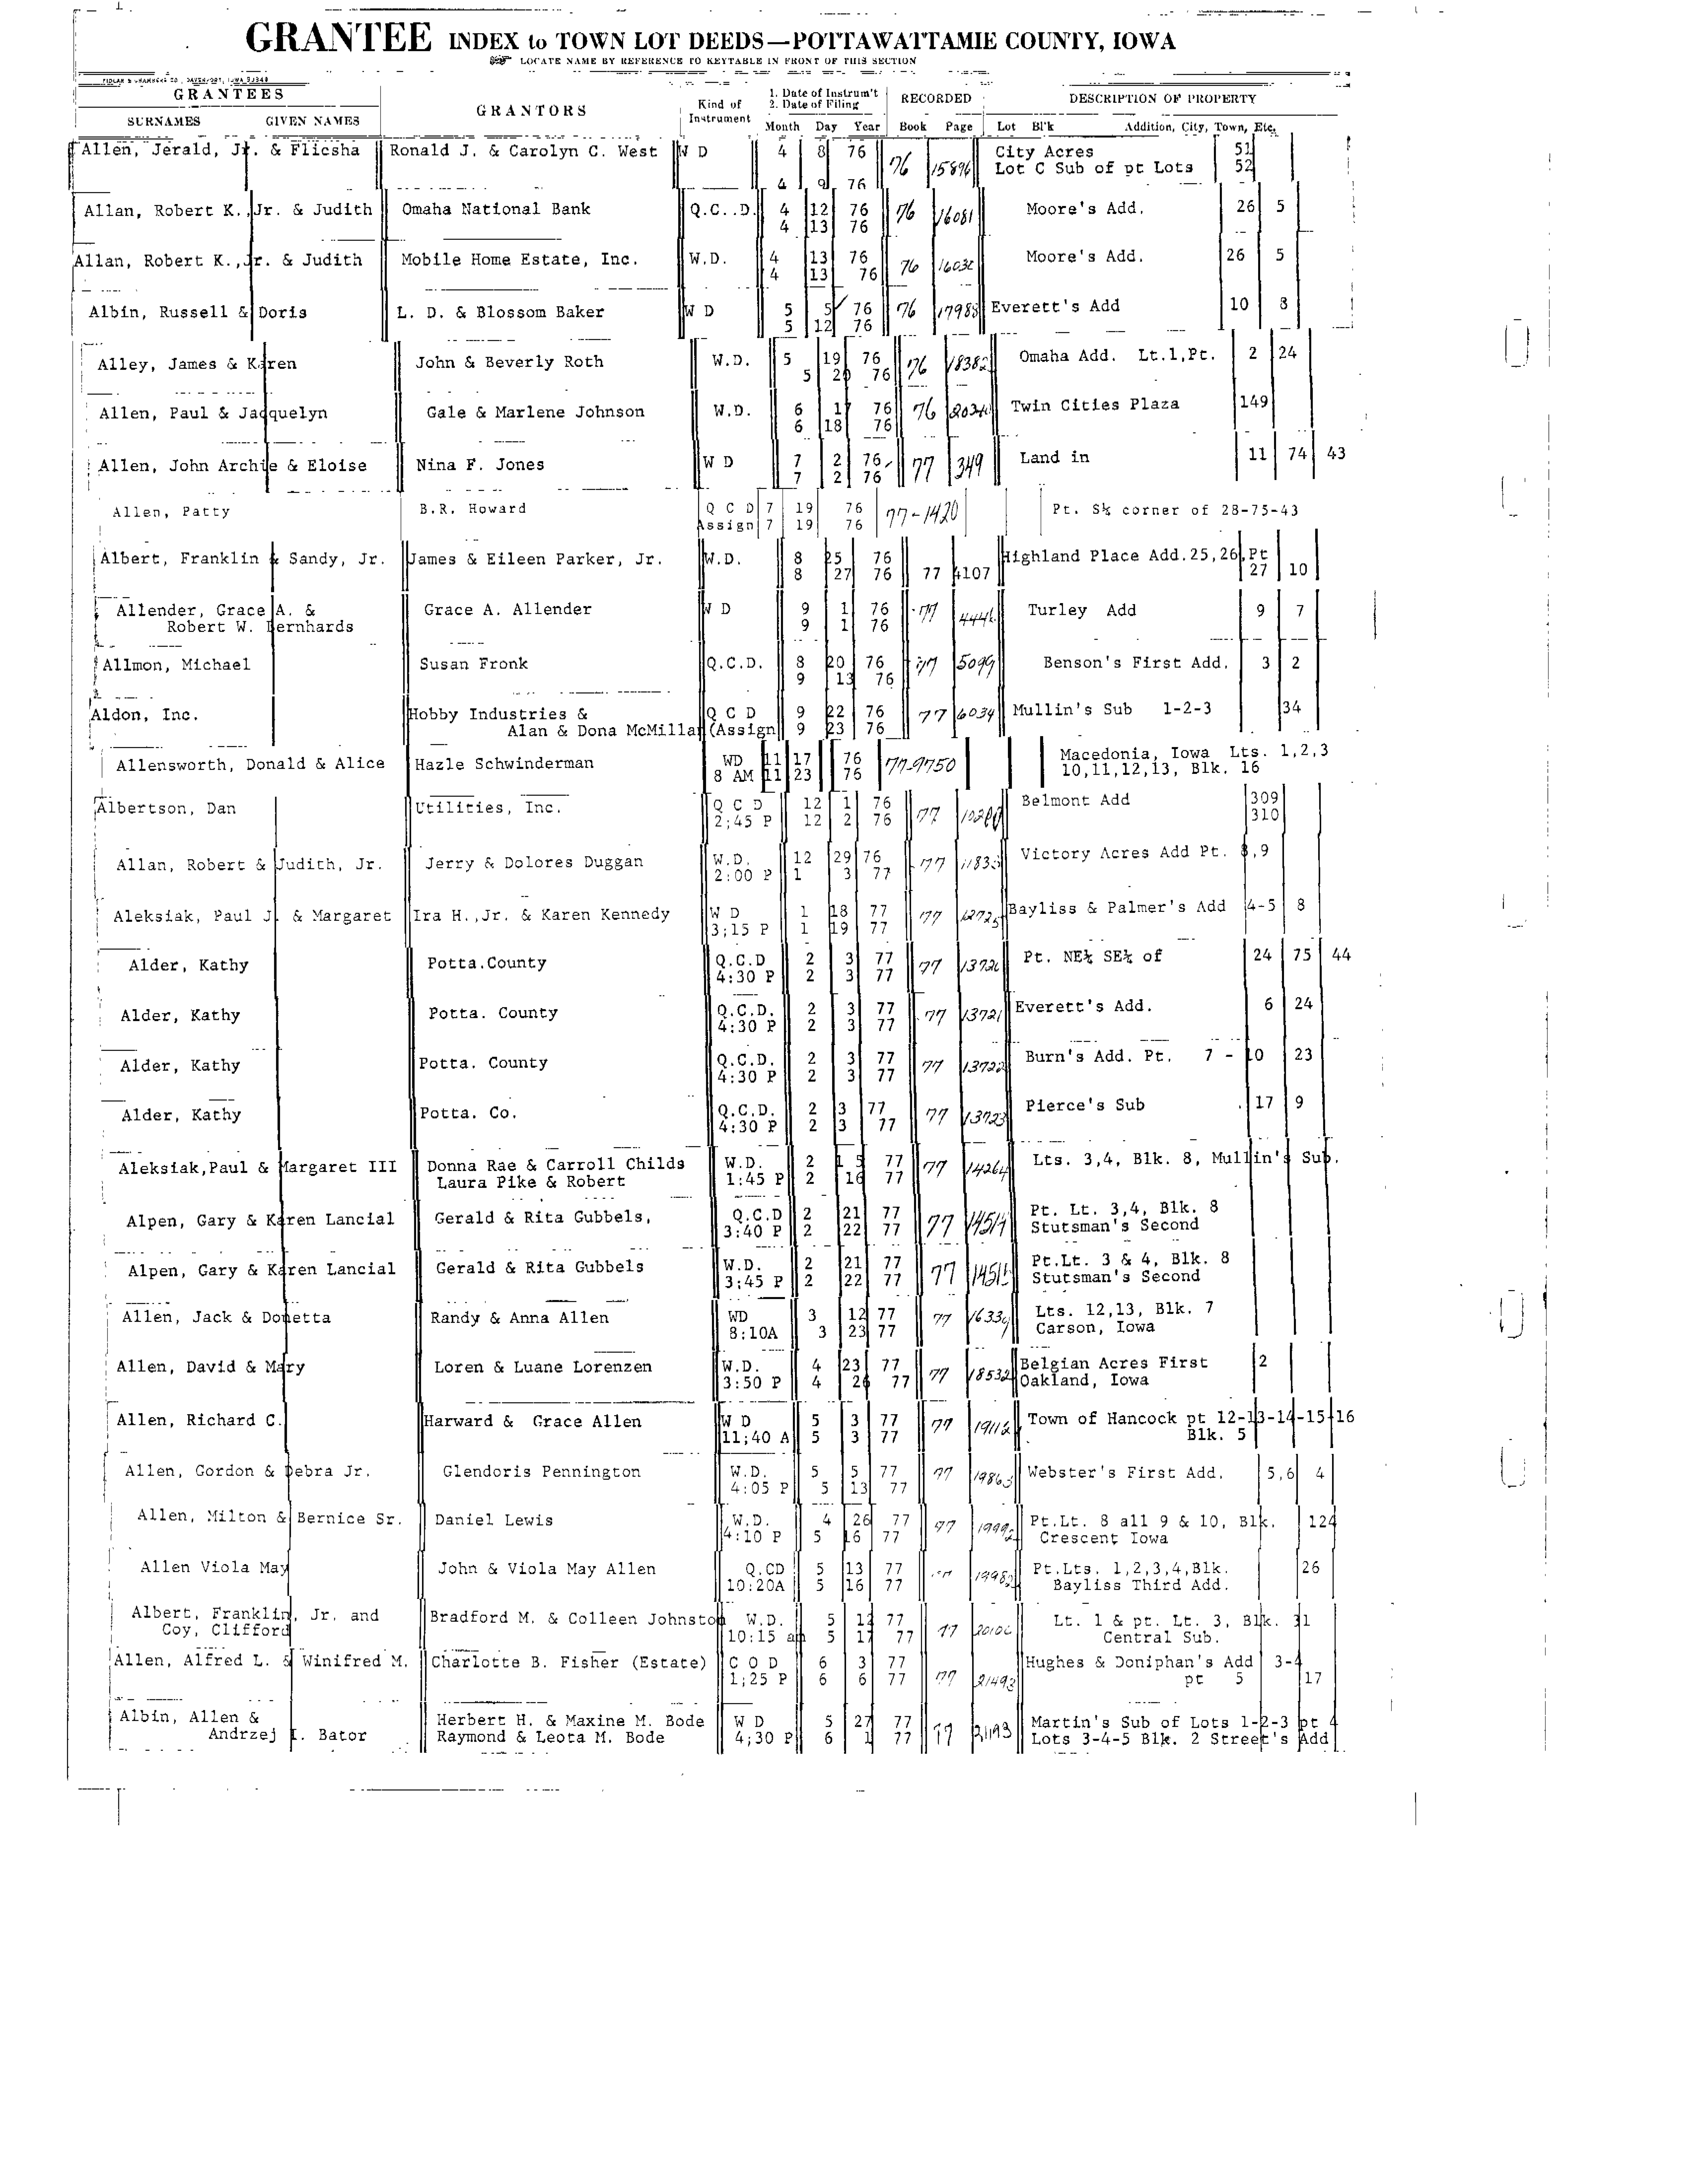 GRANTEE INDEX to TOWN LOT DEEDS—POTTAWATTAMIE COUNTY, IOWA
LOCATE NAME BY REFERENCE TO KEYTABLE IN FRONT OF THIS SECTION
GRANTEES
SURNAMES GIVEN NAMES
GRANTORS
Kind of Instrument
1. Date of Instrum't
2. Date of Filing
Month Day Year
RECORDED
Book Page
DESCRIPTION OF PROPERTY
Lot Bl'k Addition, City, Town, Etc.
Allen, Jerald, Jr. & Flicsha Ronald J. & Carolyn C. West W D 4 8 76 76 15896 City Acres 51
4 9 76 Lot C Sub of pt Lots 52
Allan, Robert K., Jr. & Judith Omaha National Bank Q.C..D. 4 12 76 76 16081 Moore's Add. 26 5
4 13 76
Allan, Robert K.,Jr. & Judith Mobile Home Estate, Inc. W.D. 4 13 76 76 Moore's Add. 26 5
4 13 76
Albin, Russell & Doris L. D. & Blossom Baker W D 5 5 76 76 17985 Everett's Add 10 8
5 12 76
Alley, James & Karen John & Beverly Roth W.D. 5 19 76 76 18382 Omaha Add. Lt.1,Pt. 2 24
5 20 76
Allen, Paul & Jacquelyn Gale & Marlene Johnson W.D. 6 17 76 76 Twin Cities Plaza 149
6 18 76
Allen, John Archie & Eloise Nina F. Jones W D 7 2 76 77 349 Land in 11 74 43
7 2 76
Allen, Patty B.R. Howard Q C D 7 19 76 77-1420 Pt. S½ corner of 28-75-43
Assign 7 19 76
Albert, Franklin & Sandy, Jr. James & Eileen Parker, Jr. W.D. 8 25 76 77 4107 Highland Place Add.25,26,Pt
8 27 76 27 10
Allender, Grace A. & Grace A. Allender W D 9 1 76 77 4446 Turley Add 9 7
Robert W. Bernhards 9 1 76
Allmon, Michael Susan Fronk Q.C.D. 8 20 76 77 5099 Benson's First Add. 3 2
9 13 76
Aldon, Inc. Hobby Industries & Q C D 9 22 76 77 6034 Mullin's Sub 1-2-3 34
Alan & Dona McMillan (Assign 9 23 76
Allensworth, Donald & Alice Hazle Schwinderman WD 11 17 76 77-9750 Macedonia, Iowa Lts. 1,2,3
8 AM 11 23 76 10,11,12,13, Blk. 16
Albertson, Dan Utilities, Inc. Q C D 12 1 76 77 Belmont Add 309
2;45 P 12 2 76 310
Allan, Robert & Judith, Jr. Jerry & Dolores Duggan W.D. 12 29 76 77 Victory Acres Add Pt. 8,9
2:00 P 1 3 77
Aleksiak, Paul J. & Margaret Ira H.,Jr. & Karen Kennedy W D 1 18 77 77 12725 Bayliss & Palmer's Add 4-5 8
3;15 P 1 19 77
Alder, Kathy Potta.County Q.C.D 2 3 77 77 13720 Pt. NE¼ SE¼ of 24 75 44
4:30 P 2 3 77
Alder, Kathy Potta. County Q.C.D. 2 3 77 77 13721 Everett's Add. 6 24
4:30 P 2 3 77
Alder, Kathy Potta. County Q.C.D. 2 3 77 77 13722 Burn's Add. Pt. 7 - 10 23
4:30 P 2 3 77
Alder, Kathy Potta. Co. Q.C.D. 2 3 77 77 13723 Pierce's Sub 17 9
4:30 P 2 3 77
Aleksiak,Paul & Margaret III Donna Rae & Carroll Childs W.D. 2 15 77 77 14264 Lts. 3,4, Blk. 8, Mullin's Sub.
Laura Pike & Robert 1:45 P 2 16 77
Alpen, Gary & Karen Lancial Gerald & Rita Gubbels, Q.C.D 2 21 77 77 14514 Pt. Lt. 3,4, Blk. 8
3:40 P 2 22 77 Stutsman's Second
Alpen, Gary & Karen Lancial Gerald & Rita Gubbels W.D. 2 21 77 77 14515 Pt.Lt. 3 & 4, Blk. 8
3;45 P 2 22 77 Stutsman's Second
Allen, Jack & Donetta Randy & Anna Allen WD 3 12 77 77 Lts. 12,13, Blk. 7
8;10A 3 23 77 Carson, Iowa
Allen, David & Mary Loren & Luane Lorenzen W.D. 4 23 77 77 18532 Belgian Acres First 2
3:50 P 4 26 77 Oakland, Iowa
Allen, Richard C. Harward & Grace Allen W D 5 3 77 77 Town of Hancock pt 12-13-14-15-16
11;40 A 5 3 77 Blk. 5
Allen, Gordon & Debra Jr. Glendoris Pennington W.D. 5 5 77 77 19863 Webster's First Add. 5,6 4
4:05 P 5 13 77
Allen, Milton & Bernice Sr. Daniel Lewis W.D. 4 26 77 77 19992 Pt.Lt. 8 all 9 & 10, Blk. 124
4:10 P 5 16 77 Crescent Iowa
Allen Viola May John & Viola May Allen Q.CD 5 13 77 77 19982 Pt.Lts. 1,2,3,4,Blk. 26
10:20A 5 16 77 Bayliss Third Add.
Albert, Franklin, Jr. and Bradford M. & Colleen Johnston W.D. 5 77 77 Lt. 1 & pt. Lt. 3, Blk. 31
Coy, Clifford 10:15 am 5 17 77 Central Sub.
Allen, Alfred L. & Winifred M. Charlotte B. Fisher (Estate) C O D 6 3 77 77 21493 Hughes & Doniphan's Add 3-4
1;25 P 6 6 77 pt 5 17
Albin, Allen & Herbert H. & Maxine M. Bode W D 5 27 77 77 21193 Martin's Sub of Lots 1-2-3 pt 4
Andrzej I. Bator Raymond & Leota M. Bode 4;30 P 6 1 77 Lots 3-4-5 Blk. 2 Street's Add